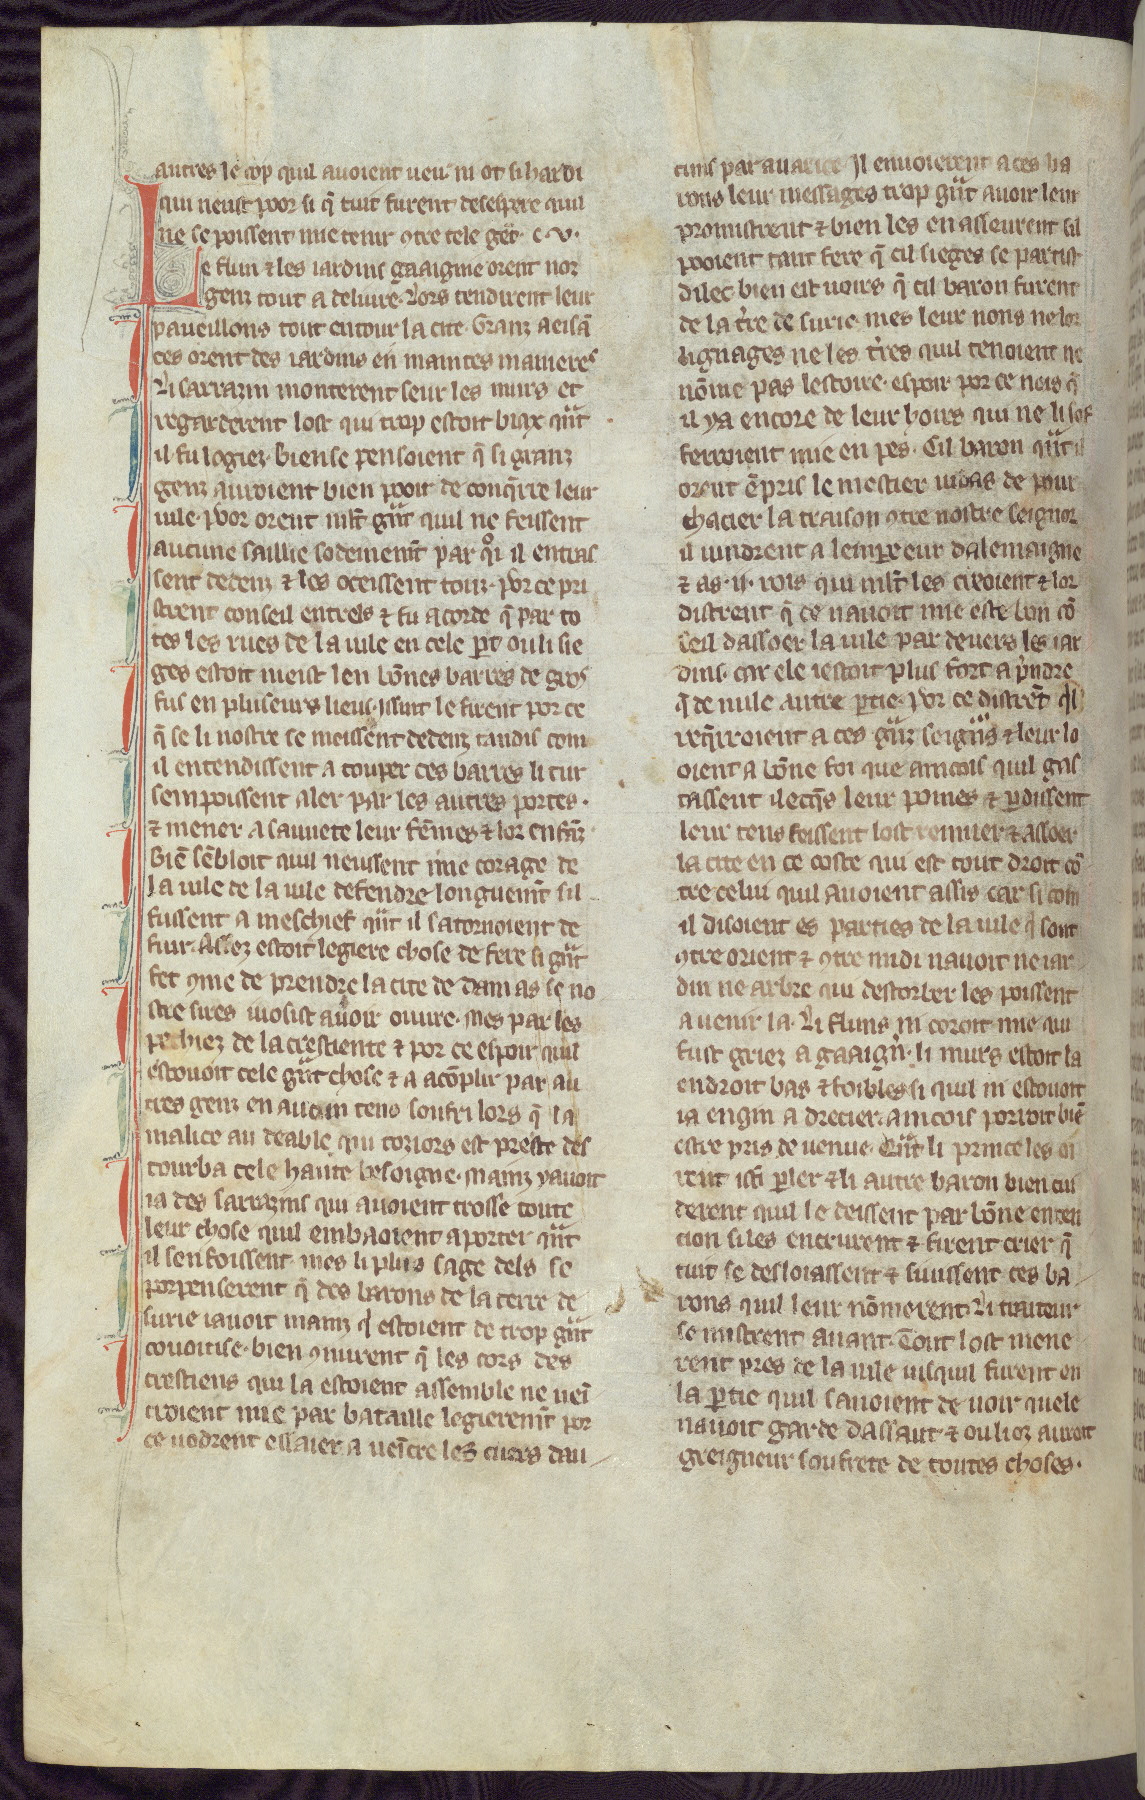 autres le cop quil avoient veu ni ot si hardi
qui neust poor si q̃ tuit furent desespere quil
ne se poissent mie tenir 9tre tele gẽt · c · v ·
Le flun ⁊ les iardins gaaignie orent nor
genz tout a delivre · Lors tendirent leur
paveillons tout entour la cite · Granz aeisã
ces orent des iardins en maintes manieres
Li sarrazin monterent seur les murs et
regarderent lost qui trop estoit biax qũt
il fu logiez · bien se pensoient q̃ si granz
genz auroient bien pooir de conq̃rre leur
vile · poor orent mlt̃ gñt quil ne feissent
aucune saillie sodement̃ par qoi il entras
sent dedenz ⁊ les oceissent touz · por ce pri
strent conseil entrels ⁊ fu acorde q̃ par to
tes les rues de la vile en cele ꝑt ou li sie
ges estoit meist len bõnes barres de gros
fus en pluseurs lieus · issint le firent por ce
q̃ se li nostre se meissent dedenz tandis com
il entendissent a couper ces barres li tur
sempoissent aler par les autres portes ·
⁊ mener a sauvete leur fẽmes ⁊ lor enfãz ·
Biẽ sẽbloit quil neussent mie corage de
la vile de la vile defendre longuemt̃ sil
fussent a meschief qũt il satornoient de
fuir · Assez estoit legiere chose de fere si gñt
fet 9me de prendre la cite de damas se no
stre sires i volsist avoir ovvre · Mes par les
pechiez de la crestiente ⁊ por ce espoir quil
estovoit cele gñt chose ⁊ a acõplir par au
tres genz en aucun tens soufri lors q̃ la
malice au deable qui toziors est preste des
tourba cele haute besoigne · Mainz y avoit
ia des sarrazins qui avoient trosse toute
leur chose quil embaoient a porter qũt
il senfoissent · mes li plus sage dels se
porpenserent q̃ des barons de la terre de
surie i avoit mainz q̃ estoient de trop gñt
covoitise · bien 9nurent q̃ les cors des
crestiens qui la estoient assemble ne vein
troient mie par bataille legierem̃t por
ce vodrent essaier a veĩtre les cuers dau
cuns par avarice · Il envoierent a ces ba
rons leur messages trop gñt avoir leur
promistrent ⁊ bien les en asseurent sil
pooient tant fere q̃ cil sieges se partist
dilec bien est voirs q̃ cil baron furent
de la t̃re de surie · mes leur nons ne lor
lignages ne les t̃res quil tenoient ne
nõme pas lestoire · espoir por ce nois q̃
il y a encore de leur hoirs qui ne li sof
ferroient mie en pes · Cil baron qũt il
orent ẽpris le mestier iudas de pour
chacier la traison 9tre nostre seignor
il vindrent a lempereur dalemaigne
⁊ as · ii · rois qui mlt̃ les creoient ⁊ lor
distrent q̃ ce navoit mie este bon cõ
seil dassoer la vile par devers les iar
dins · car ele i estoit plus fort a p̃ndre
q̃ de nule autre ꝑtie · Por ce distrẽt q̃l
req̃rroient a ces gñz seigñs ⁊ leur lo
oient a bõne foi que aincois quil gas
tassent ilecq̃s leur poines ⁊ ꝑdissent
leur tens feissent lost remuier ⁊ assoer
la cite en ce coste qui est tout droit cõ
tre celui quil avoient assis car si com
il disoient es parties de la vile q̃ sont
9tre orient ⁊ 9tre midi navoit ne iar
din ne arbre qui destorber les poissent
a venir la · Li fluns ni coroit mie qui
fust griez a gaaigñ · li murs estoit la
endroit bas ⁊ foibles si quil ni estovoit
ia engin a drecier · aincois porroit biẽ
estre pris de venue · Qũt li prince les oi
rent issi ꝑler ⁊ li autre baron bien cui
derent quil le deissent par bõne enten
cion si les entreurent ⁊ firent crier q̃
tuit se desloiassent ⁊ suivissent ces ba
rons quil leur nõmerent · Li traiteur
se mistrent avant · Tout lost mene
rent pres de la vile iusquil furent en
la ꝑtie quil savoient de voir quele
navoit garde dassaut ⁊ ou li oz auroit
greigneur soufrete de toutes choses ·